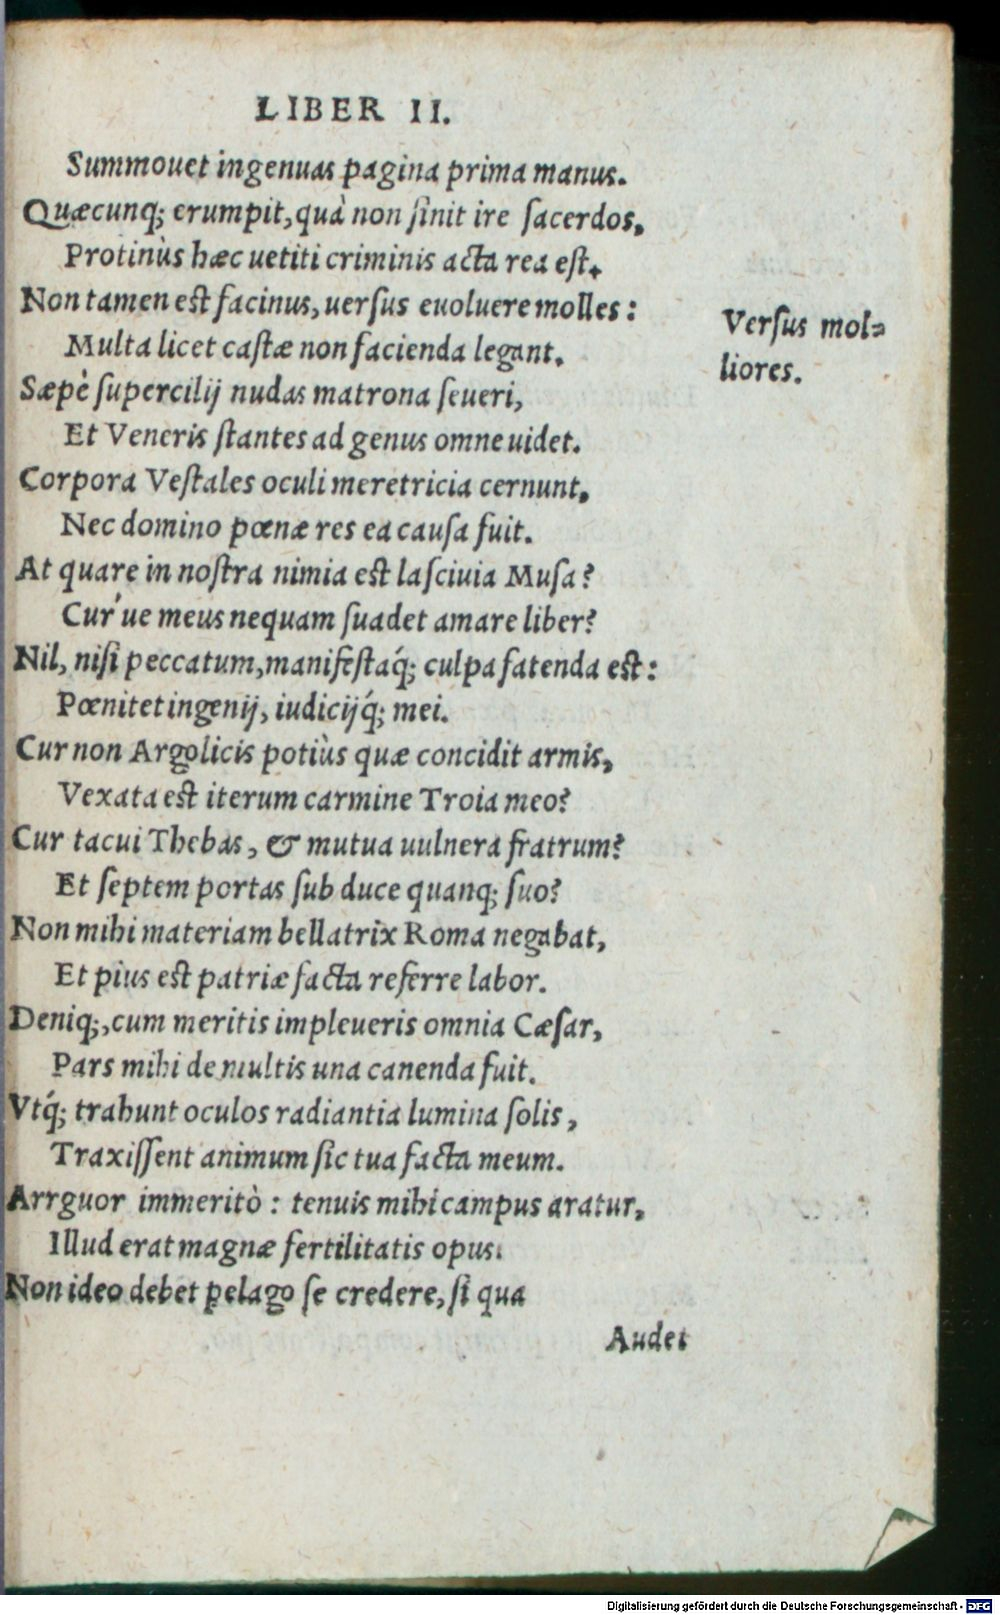 LIBER II.
Summouet ingenuas pagina prima manus.
Quæcunq; erumpit, quà non ſinit ire ſacerdos,
Protinùs hæc uetiti criminis acta rea eſt.
Non tamen eſt facinus, uerſus euoluere molles:
Multa licet caſtæ non facienda legant.
Sæpè ſupercilij nudas matrona ſeueri,
Et Veneris ſtantes ad genus omne uidet.
Corpora Veſtales oculi meretricia cernunt,
Nec domino pœnæ res ea cauſa fuit.
At quare in noſtra nimia eſt laſciuia Muſa?
Cur'ue meus nequam ſuadet amare liber?
Nil, niſi peccatum, manifeſtaq́; culpa fatenda est:
Pœnitet ingenij, iudicijq́; mei.
Cur non Argolicis potiùs quæ concidit armis,
Vexata eſt iterum carmine Troia meo?
Cur tacui Thebas, & mutua uulnera fratrum?
Et ſeptem portas ſub duce quanq; ſuo?
Non mihi materiam bellatrix Roma negabat,
Et piùs eſt patriæ facta referre labor.
Deniq;, cum meritis impleueris omnia Cæſar,
Pars mihi de multis una canenda fuit.
Vtq́; trahunt oculos radiantia lumina ſolis,
Traxiſſent animum ſic tua facta meum.
Arrguor immeritò: tenuis mihi campus aratur,
Illud erat magnæ fertilitatis opus.
Non ideo debet pelago ſe credere, ſi qua
Audet
Verſus mol⸗
liores.
Digitalisierung gefördert durch die Deutsche Forschungsgemeinschaft - DFG